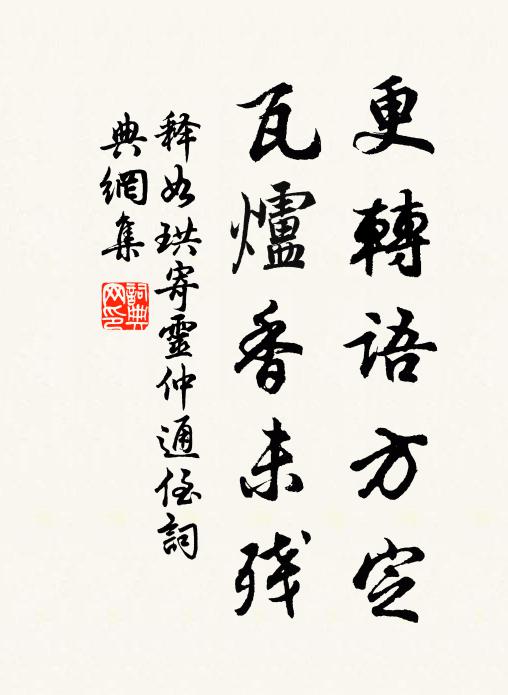 更轉語方定
瓦爐香未残
释如珙寄靈仲通侄詞
典網集
詞典
网印